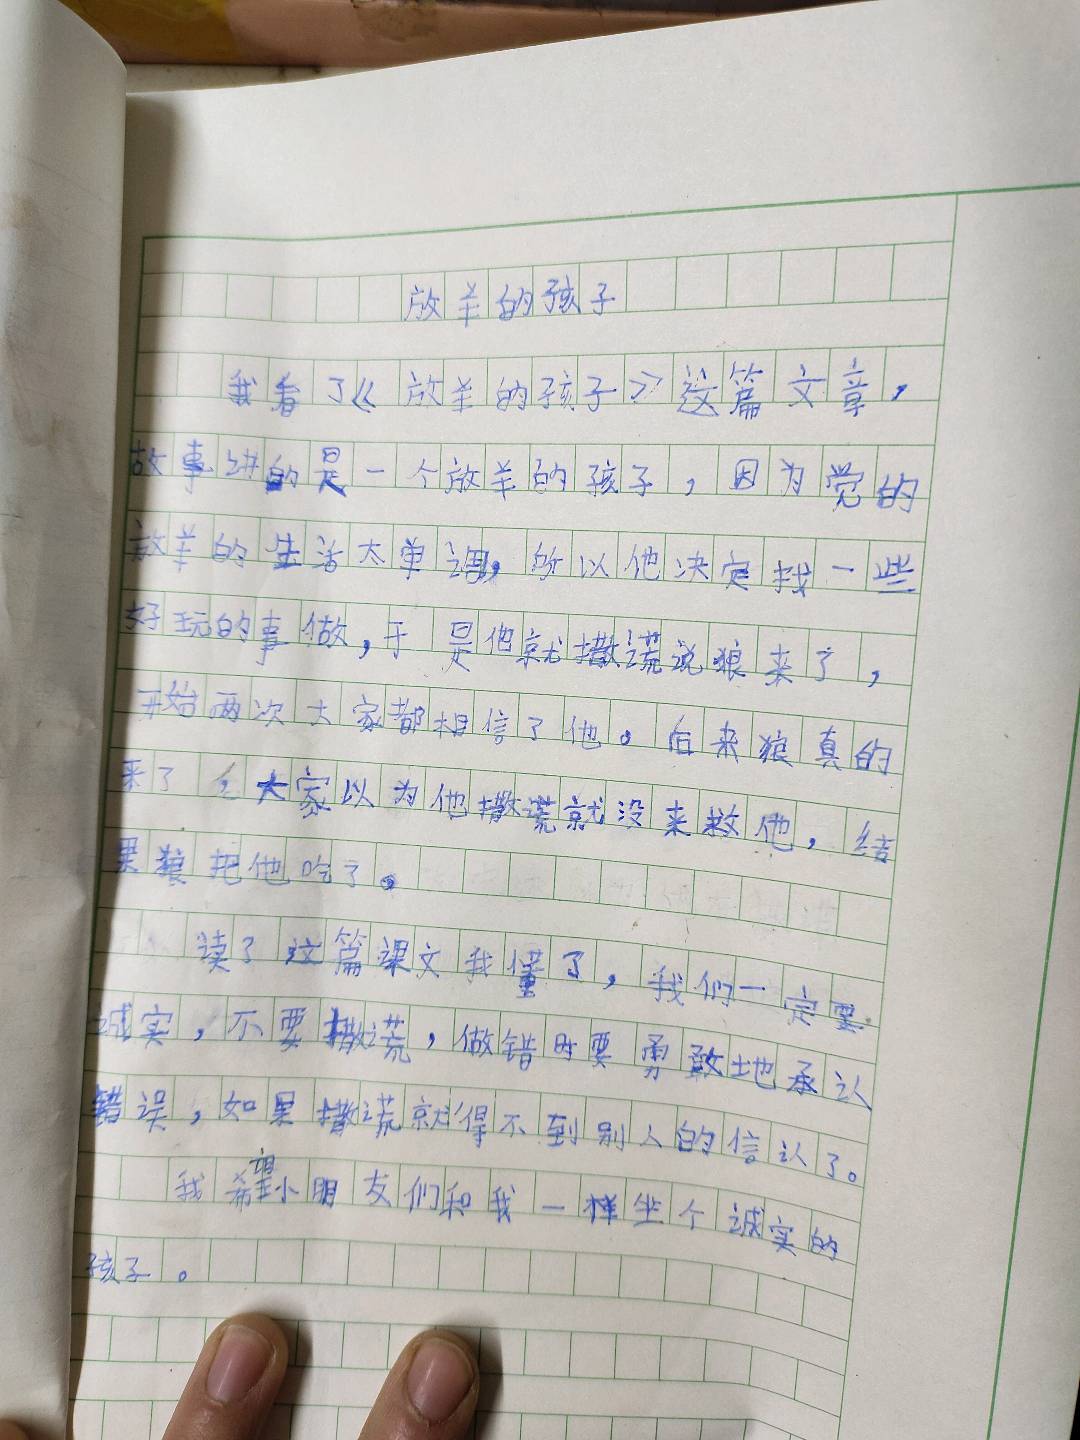 放羊的孩子
我看了《放羊的孩子》这篇文章，
故事讲的是一个放羊的孩子，因为觉的
放羊的生活太单调，所以他决定找一些
好玩的事做，于是他就撒谎说狼来了，
开始两次大家都相信了他。后来狼真的
来了 大家以为他撒谎就没来救他，结
果狼把他吃了。
读了这篇课文我懂了，我们一定要
诚实，不要撒谎，做错时要勇敢地承认
错误，如果撒谎就得不到别人的信认了。
我希望小朋友们和我一样坐个诚实的
孩子。